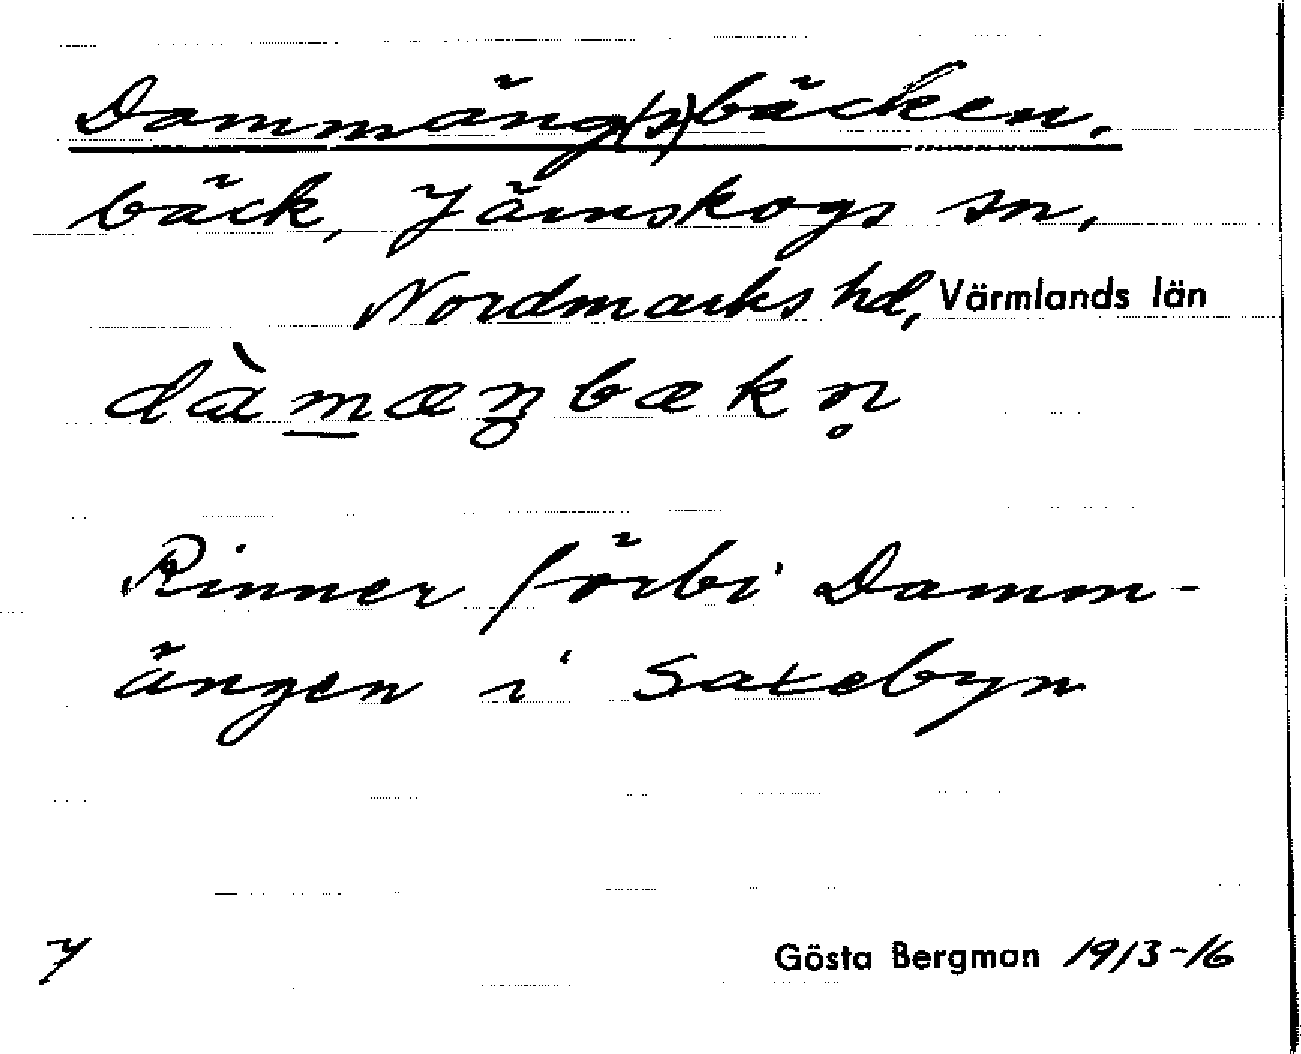 Dammäng(s)bäcken.
bäck, Järnskogs sn,
Nordmarks hd, Värmlands län
dàmæŋbækn̥
Rinner förbi Damm-
ängen i Saxebyn
Gösta Bergman 1913-16